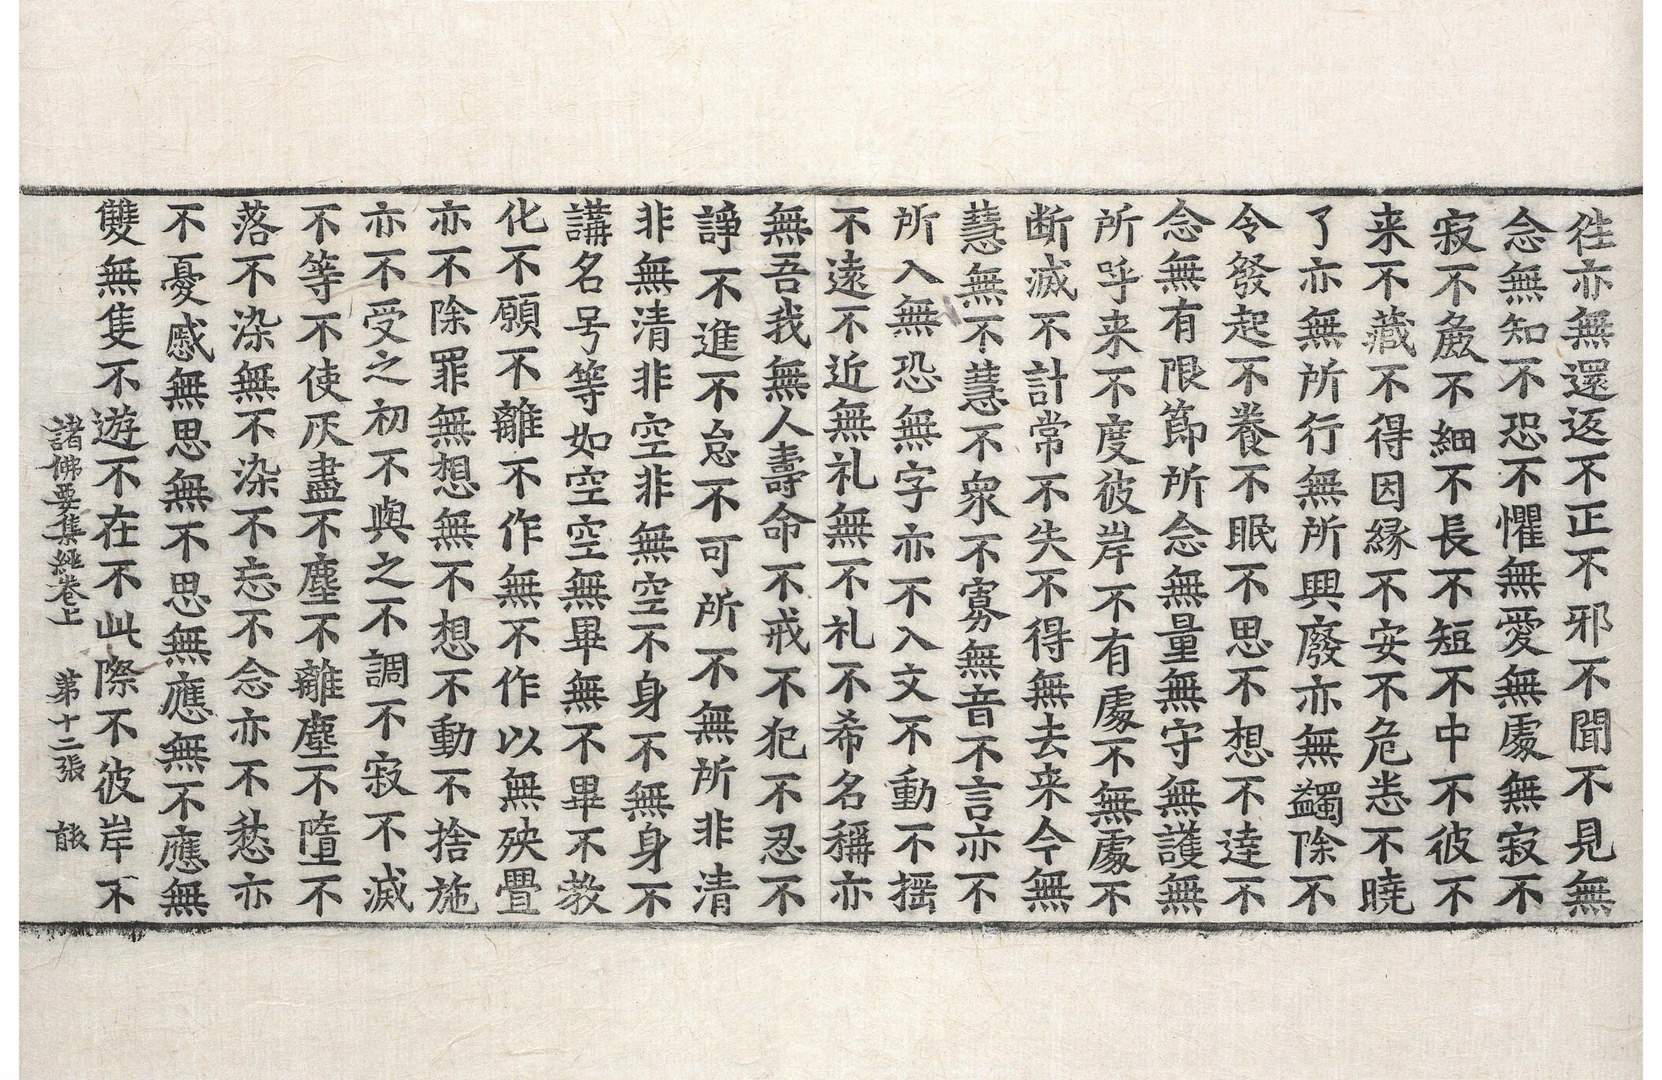 徃亦無還返不正不邪不聞不見無
念無知不恐不懼無愛無處無寂不
寂不麁不細不長不短不中不彼不
来不藏不得因縁不安不危恙不曉
了亦無所行無所興廢亦無蠲除不
令發起不養不眠不思不想不達不
念無有限節所念無量無守無護無
所呼来不度彼岸不有處不無處不
断滅不計常不失不得無去来今無
慧無不慧不衆不寡無音不言亦不
所入無恐無字亦不入文不動不揺
不遠不近無礼無不礼不希名稱亦
無吾我無人壽命不戒不犯不忍不
諍不進不怠不可所不無所非清
非無清非空非無空不身不無身不
講名号等如空空無畢無不畢不教
化不願不離不作無不作以無殃舋
亦不除罪無想無不想不動不捨施
亦不受之初不與之不調不寂不滅
不等不使灰盡不塵不離塵不墮不
落不染無不染不忘不念亦不愁亦
不憂慼無思無不思無應無不應無
雙無隻不遊不在不此際不彼岸不
諸佛要集經卷上　第十二張　餓